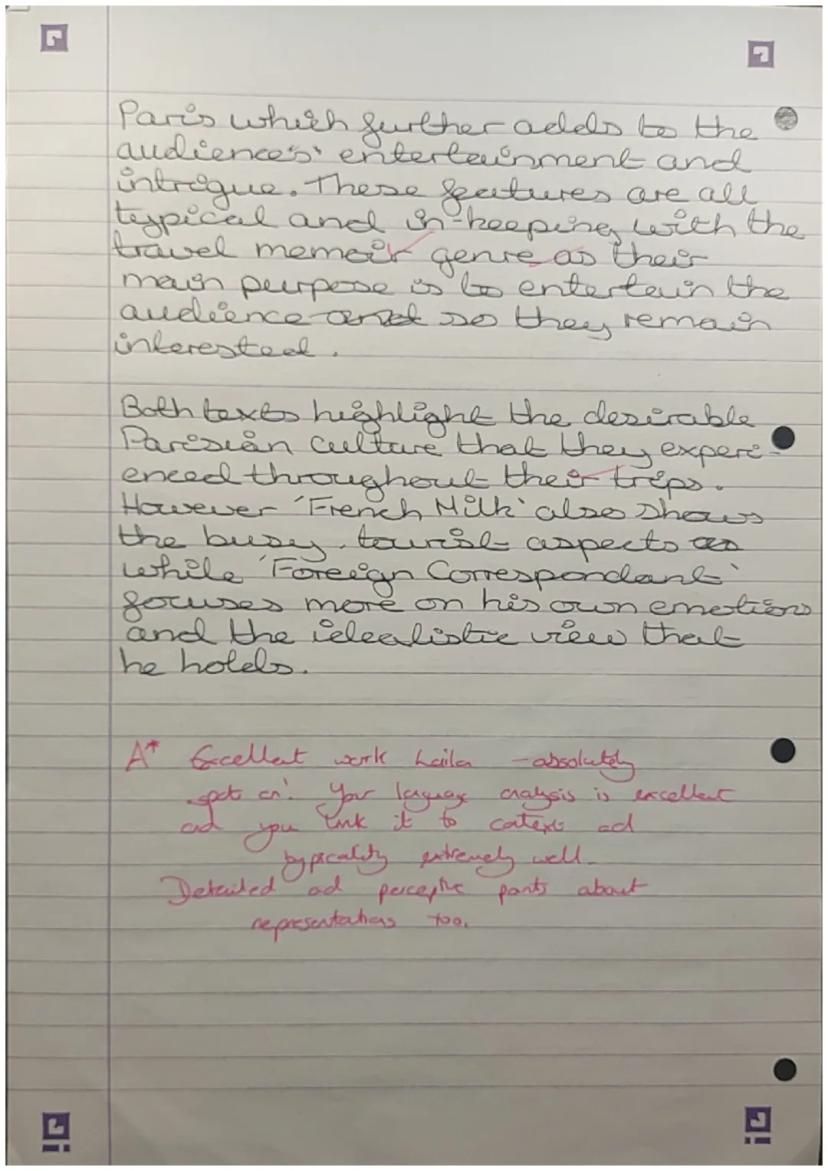 Paris which further adds to the
audiences' entertainment and
intrigue. These features are all
typical and in-keeping with the
travel memoir genre as their
main purpose is to entertain the
audience and so they remain
interested.
Both texts highlight the desirable
Parisian culture that they experi-
enced throughout their trips.
However 'French Milk' also shows
the busy, tourist aspects as
while 'Foreign Correspondant'
focuses more on his own emotions
and the idealistic view that
he holds.
A* Excellent work Laila - absolutely
spot on! Your language analysis is excellent
and you link it to contexts and
typicality extremely well.
Detailed and perceptive points about
representations too.